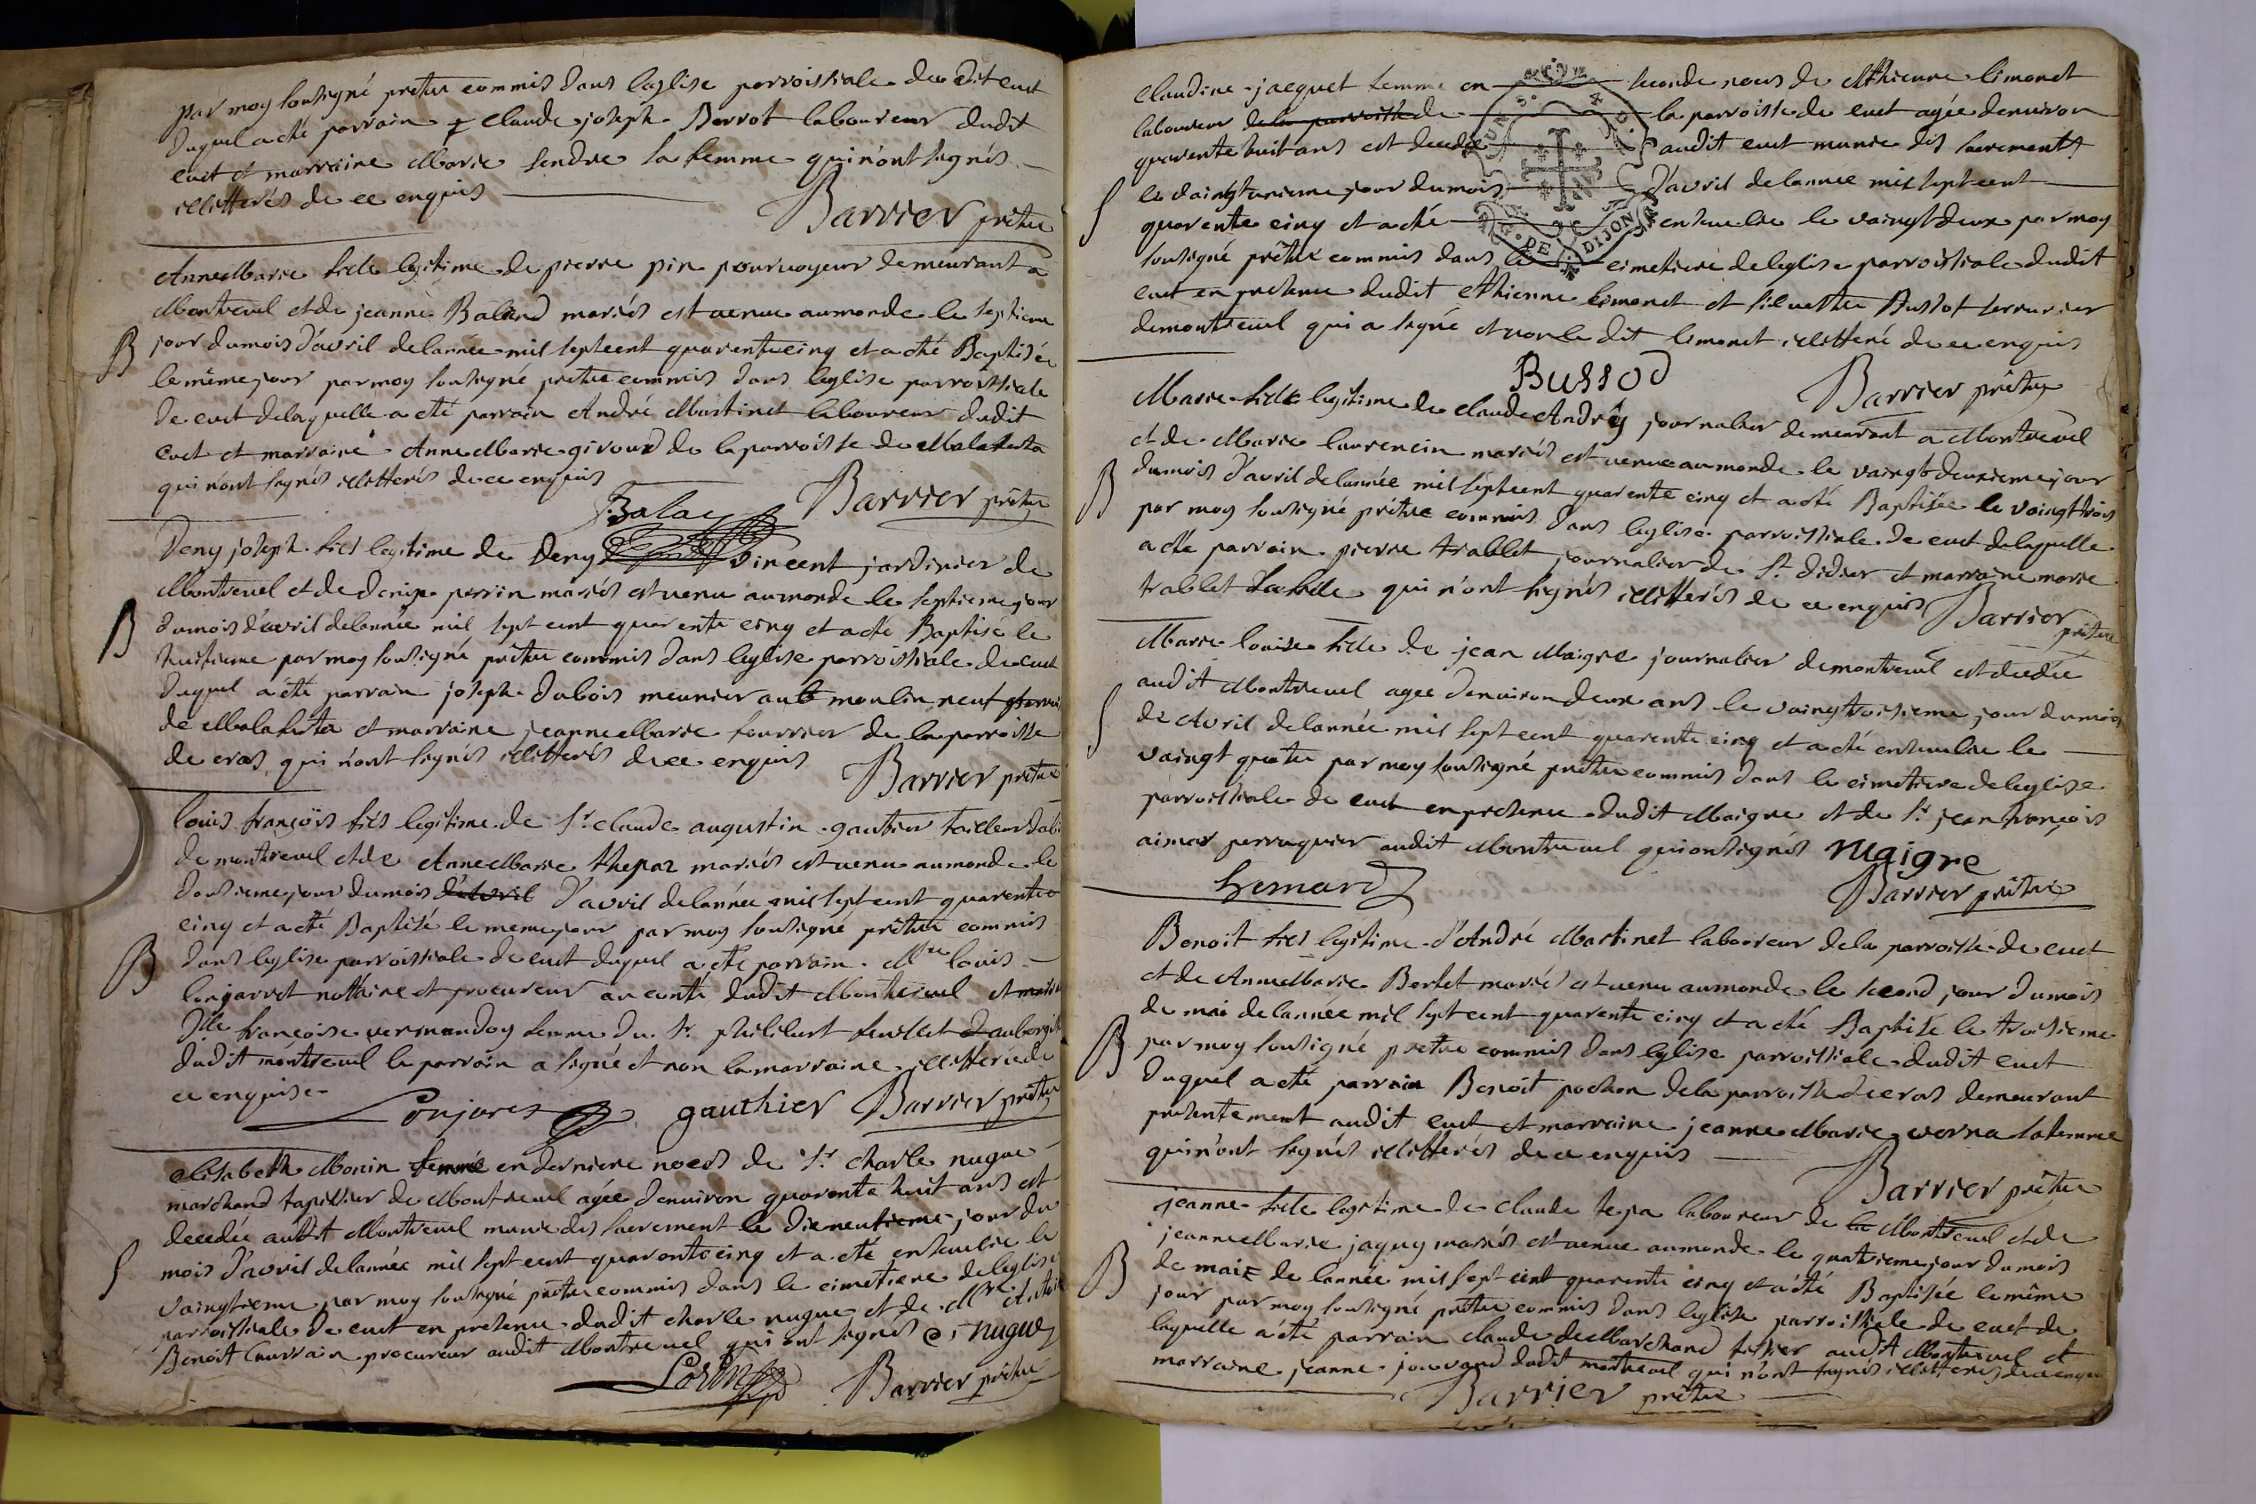 par moy soussigné prêtre commis dans leglise parroissiale du dit cuet
duquel a eté parrain claude joseph Berrot laboureur dudit
cuet et marraine Marie sa femme qui n'ont signés
illitterés de ce enquis
Barrier prêtre
AnneMarie fille legitime de pierre pin pourvoyeur demeurant a
Montreuel et de jeanne Baland mariés est venue au monde le septieme
jour du mois d'avril de lannée mil sept cent quarente cinq et a eté Baptisée
le même jour par moy soussigné prêtre commis dans leglise parroissiale
de cuet de laquelle a eté parrain André Martinet laboureur dudit
cuet et marraine AnneMarie giroud de la parroisse de Malafreta
qui n'ont signés illitterés de ce enquis
Barrier prêtre
Deny joseph fils legitime de Deny vincent jardinier de
Montreuel et de Denise perrin mariés est venu au monde le septieme jour
du mois d'avril de lannée mil sept cent quarente cinq et a eté Baptisé le
huitieme par moy soussigné prêtre commis dans leglise parroissiale de cuet
duquel a eté parrain joseph dubois meunier au moulin neuf
de Malafreta et marraine jeanneMarie fourrier de la parroisse
de cras qui n'ont signés illitterés de ce enquis
Barrier prêtre
louis françois fils legitime de Sr claude augustin gautier tailleur
de montreuel et de AnneMarie thepaz mariés est venu au monde le
jour du mois d'avril d'avril de lannée mil sept cent quarente
cinq et a eté Baptisé le meme jour par moy soussigné prêtre commis
dans leglise parroissiale de cuet duquel a eté parrain Mre louis
lonjarret nottaire et procureur au conté dudit Montreuel et
Dlle françoise vermandoy femme du Sr philibert feuillet
dudit montreuel le parrain a signé et non la marraine illitterée de
ce enquise
gauthier Barrier prêtre
elisabeth Monin femme en derniere noces de Sr charle nugue
marchand tapissier de Montreuel agée denviron quarente huit ans est
decedée audit Montreuel munie des sacrement le dixneufieme jour du
mois d'avril de lannée mil sept cent quarente cinq et a eté ensevelie le
vaingtieme par moy soussigné prêtre commis dans le cimetiere de leglise
parroissiale de cuet en presence dudit charle nugue et de Mre
Benoit procureur audit Montreuel qui ont signés C, nugue
Barrier prêtre
claudine jacquet femme en seconde noces de Ethienne limonet
laboureur de la parroisse de la parroisse de cuet agée denviron
quarente huit ans est decedée audit cuet munie des sacrements
le vaingtunieme jour du mois d'avril de lannée mil sept cent
quarente cinq et a eté ensevelie le vaingtdeux par moy
soussigné prêtre commis dans le cimetiere de leglise parroissiale dudit
cuet en presence dudit Ethienne limonet et silvestre Bussot serrurier
de montreuel qui a signé et non le dit limonet illitteré de ce enquis
Bussod
Barrier prêtre
Marie fille legitime de claude Andrey journalier demeurant a Montreuel
et de Marie laurencin mariés est venue au monde le vaingtdeuxieme jour
du mois d'avril de lannée mil sept cent quarente cinq et a eté Baptisée le vaingttrois
par moy soussigné prêtre commis dans leglise parroissiale de cuet de laquelle
a eté parrain pierre trablet journalier de St didier et marraine marie
trablet sa fille qui n'ont signés illitterés de ce enquis Barrier
prêtre
Marie louise fille de jean Maigre journalier de montreuel est decedée
audit Montreuel agée denviron deux ans le vaingtroisieme jour du mois
de Avril de lannée mil sept cent quarente cinq et a eté ensevelie le
vaingt quatre par moy soussigné prêtre commis dans le cimetiere de leglise
parroissiale de cuet en presence dudit Maigre et de Sr jean françois
aimar perruquier audit Montreuel qui ont signés Maigre
hemard
Barrier prêtre
Benoit fils legitime d'André Martinet laboureur de la parroisse de cuet
et de AnneMarie Bertet mariés est venu au monde le second jour du mois
de mai de lannée mil sept cent quarente cinq et a eté Baptisé le troisieme
par moy soussigné prêtre commis dans leglise parroissiale dudit cuet
duquel a eté parrain Benoit pochon de la parroisse de cras demeurant
presentement audit cuet et marraine jeanne Marie verna sa femme
qui n'ont signés illitterés de ce enquis
Barrier prêtre
jeanne fille legitime de claude tepa laboureur de la Montreuel et de
jeanneMarie jaquy mariés est venue au monde le quatrieme jour du mois
de mai de lannée mil sept cent quarente cinq et a eté Baptisée le même
jour par moy soussigné prêtre commis dans leglise parroissiale de cuet de
laquelle a eté parrain claude deMarchand tissier audit Montreuel et
marraine jeanne jouvand dudit montreuel qui n'ont signés illitterés de ce enquis
Barrier prêtre